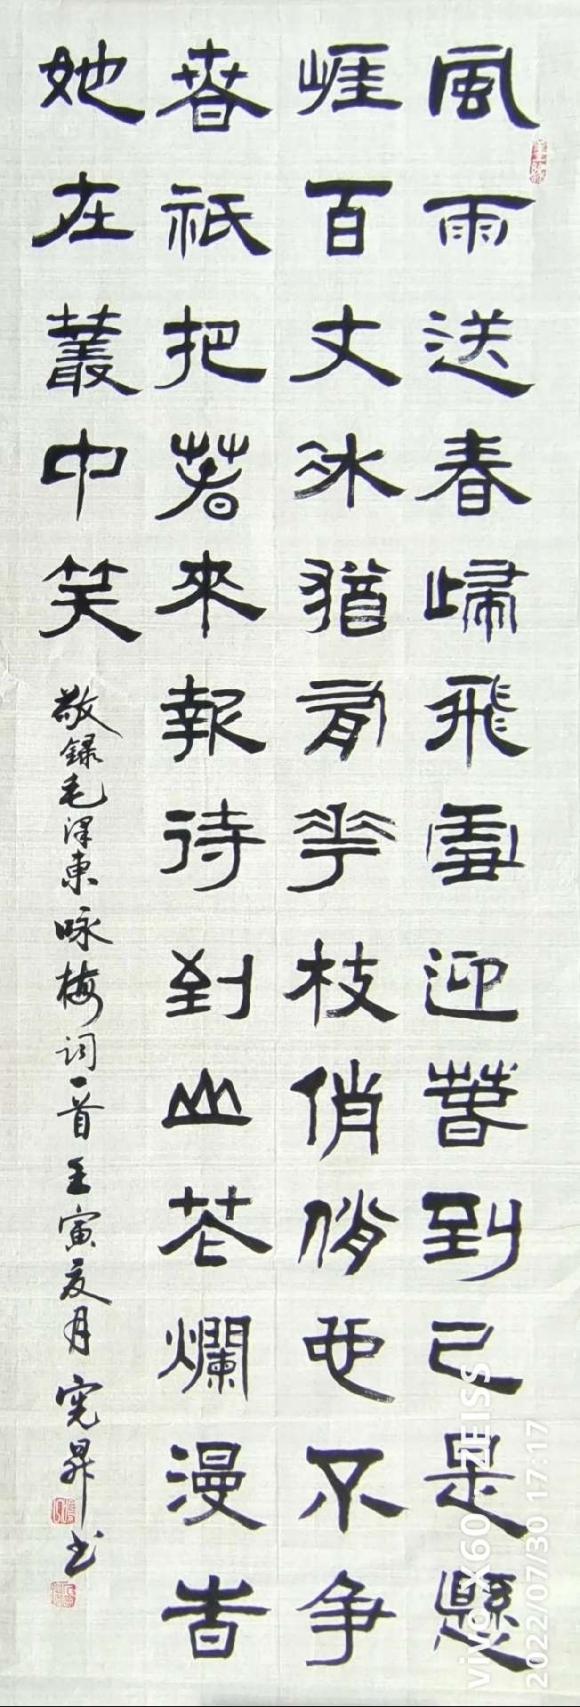 風雨送春歸飛雪迎萅到已是懸
崕百丈冰猶有花枝俏俏也不争
春祇把萅來報待到山花爛漫旹
她在叢中笑
敬録毛泽東咏梅词一首壬寅夏月
vivo X60 ZEISS
2022/07/30 17:17